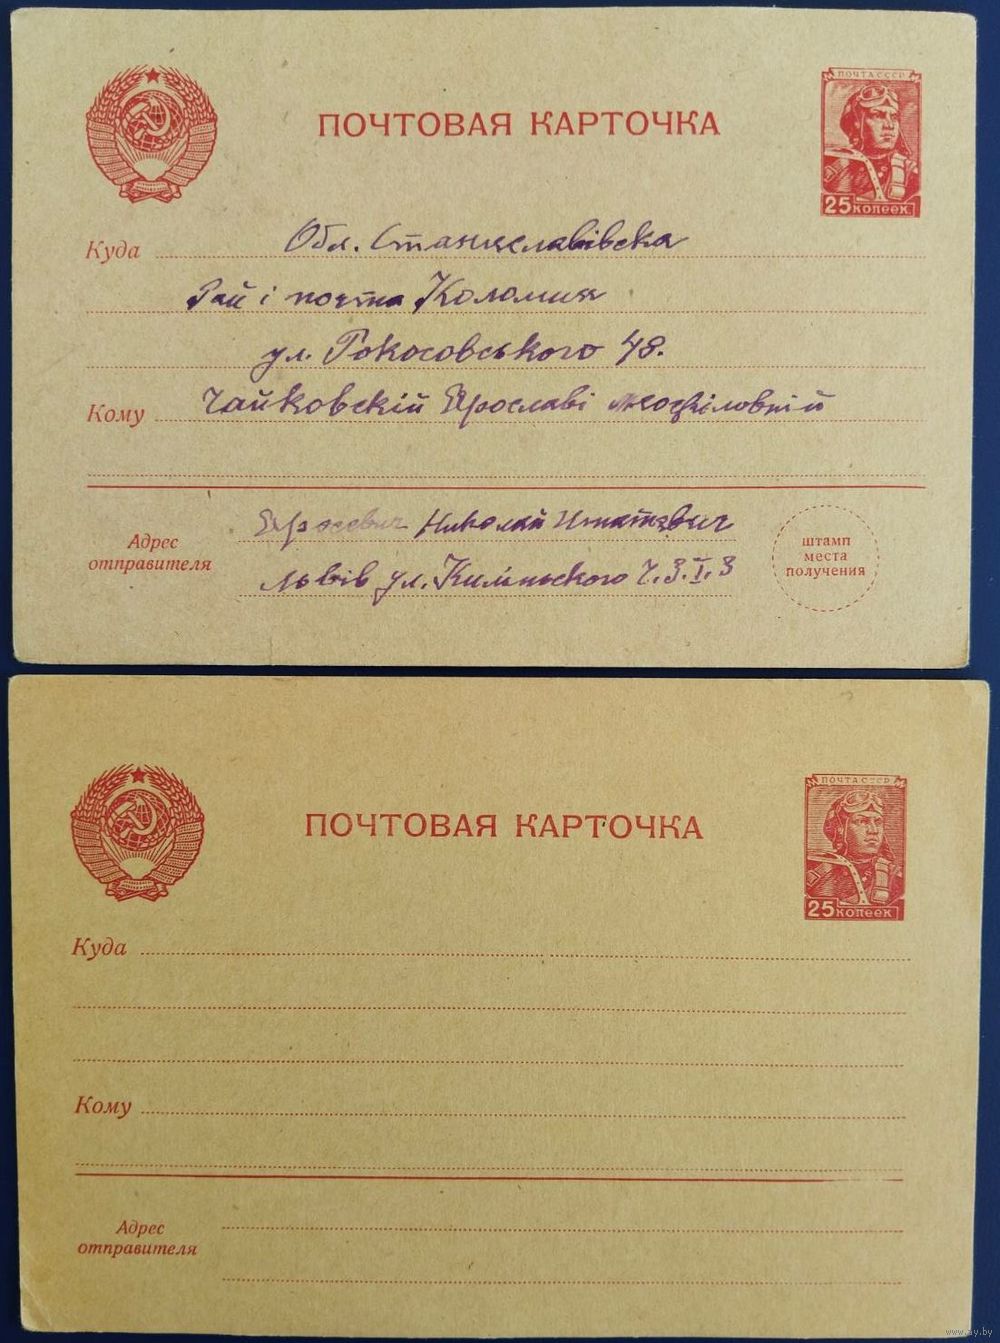 ПОЧТОВАЯ КАРТОЧКА
ПОЧТА СССР
25 копеек
Куда Обл. Станиславівска
Рай і почта Коломия
ул. Рокосовського 48.
Кому Чайковскій Ярославі
Адрес отправителя
Николай Игнатевич
Львів ул. Килінського Ч. 3. I. 3
штамп
места
получения
ПОЧТОВАЯ КАРТОЧКА
ПОЧТА СССР
25 копеек
Куда
Кому
Адрес
отправителя
www.ay.by